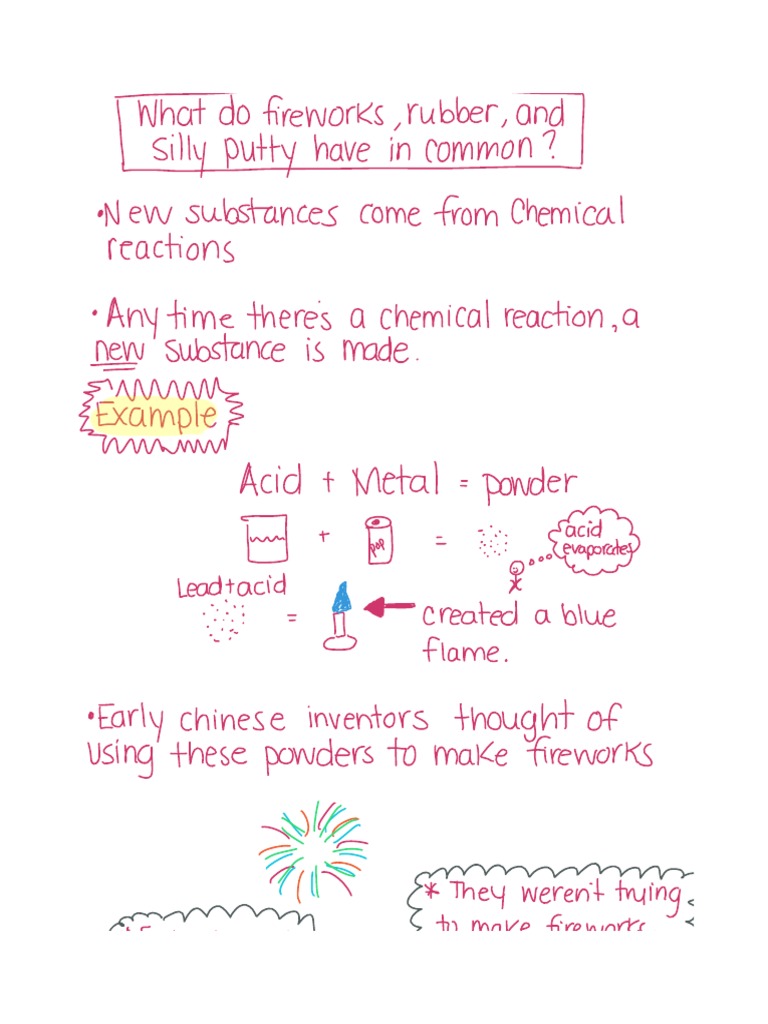 What do fireworks, rubber, and
silly putty have in common?
•New substances come from Chemical
reactions
•Any time there's a chemical reaction, a
new substance is made.
Example
Acid + Metal = powder
+ pop =
acid
evaporates
Lead+acid
=
created a blue
flame.
•Early chinese inventors thought of
using these powders to make fireworks
* They weren't trying
to make fireworks